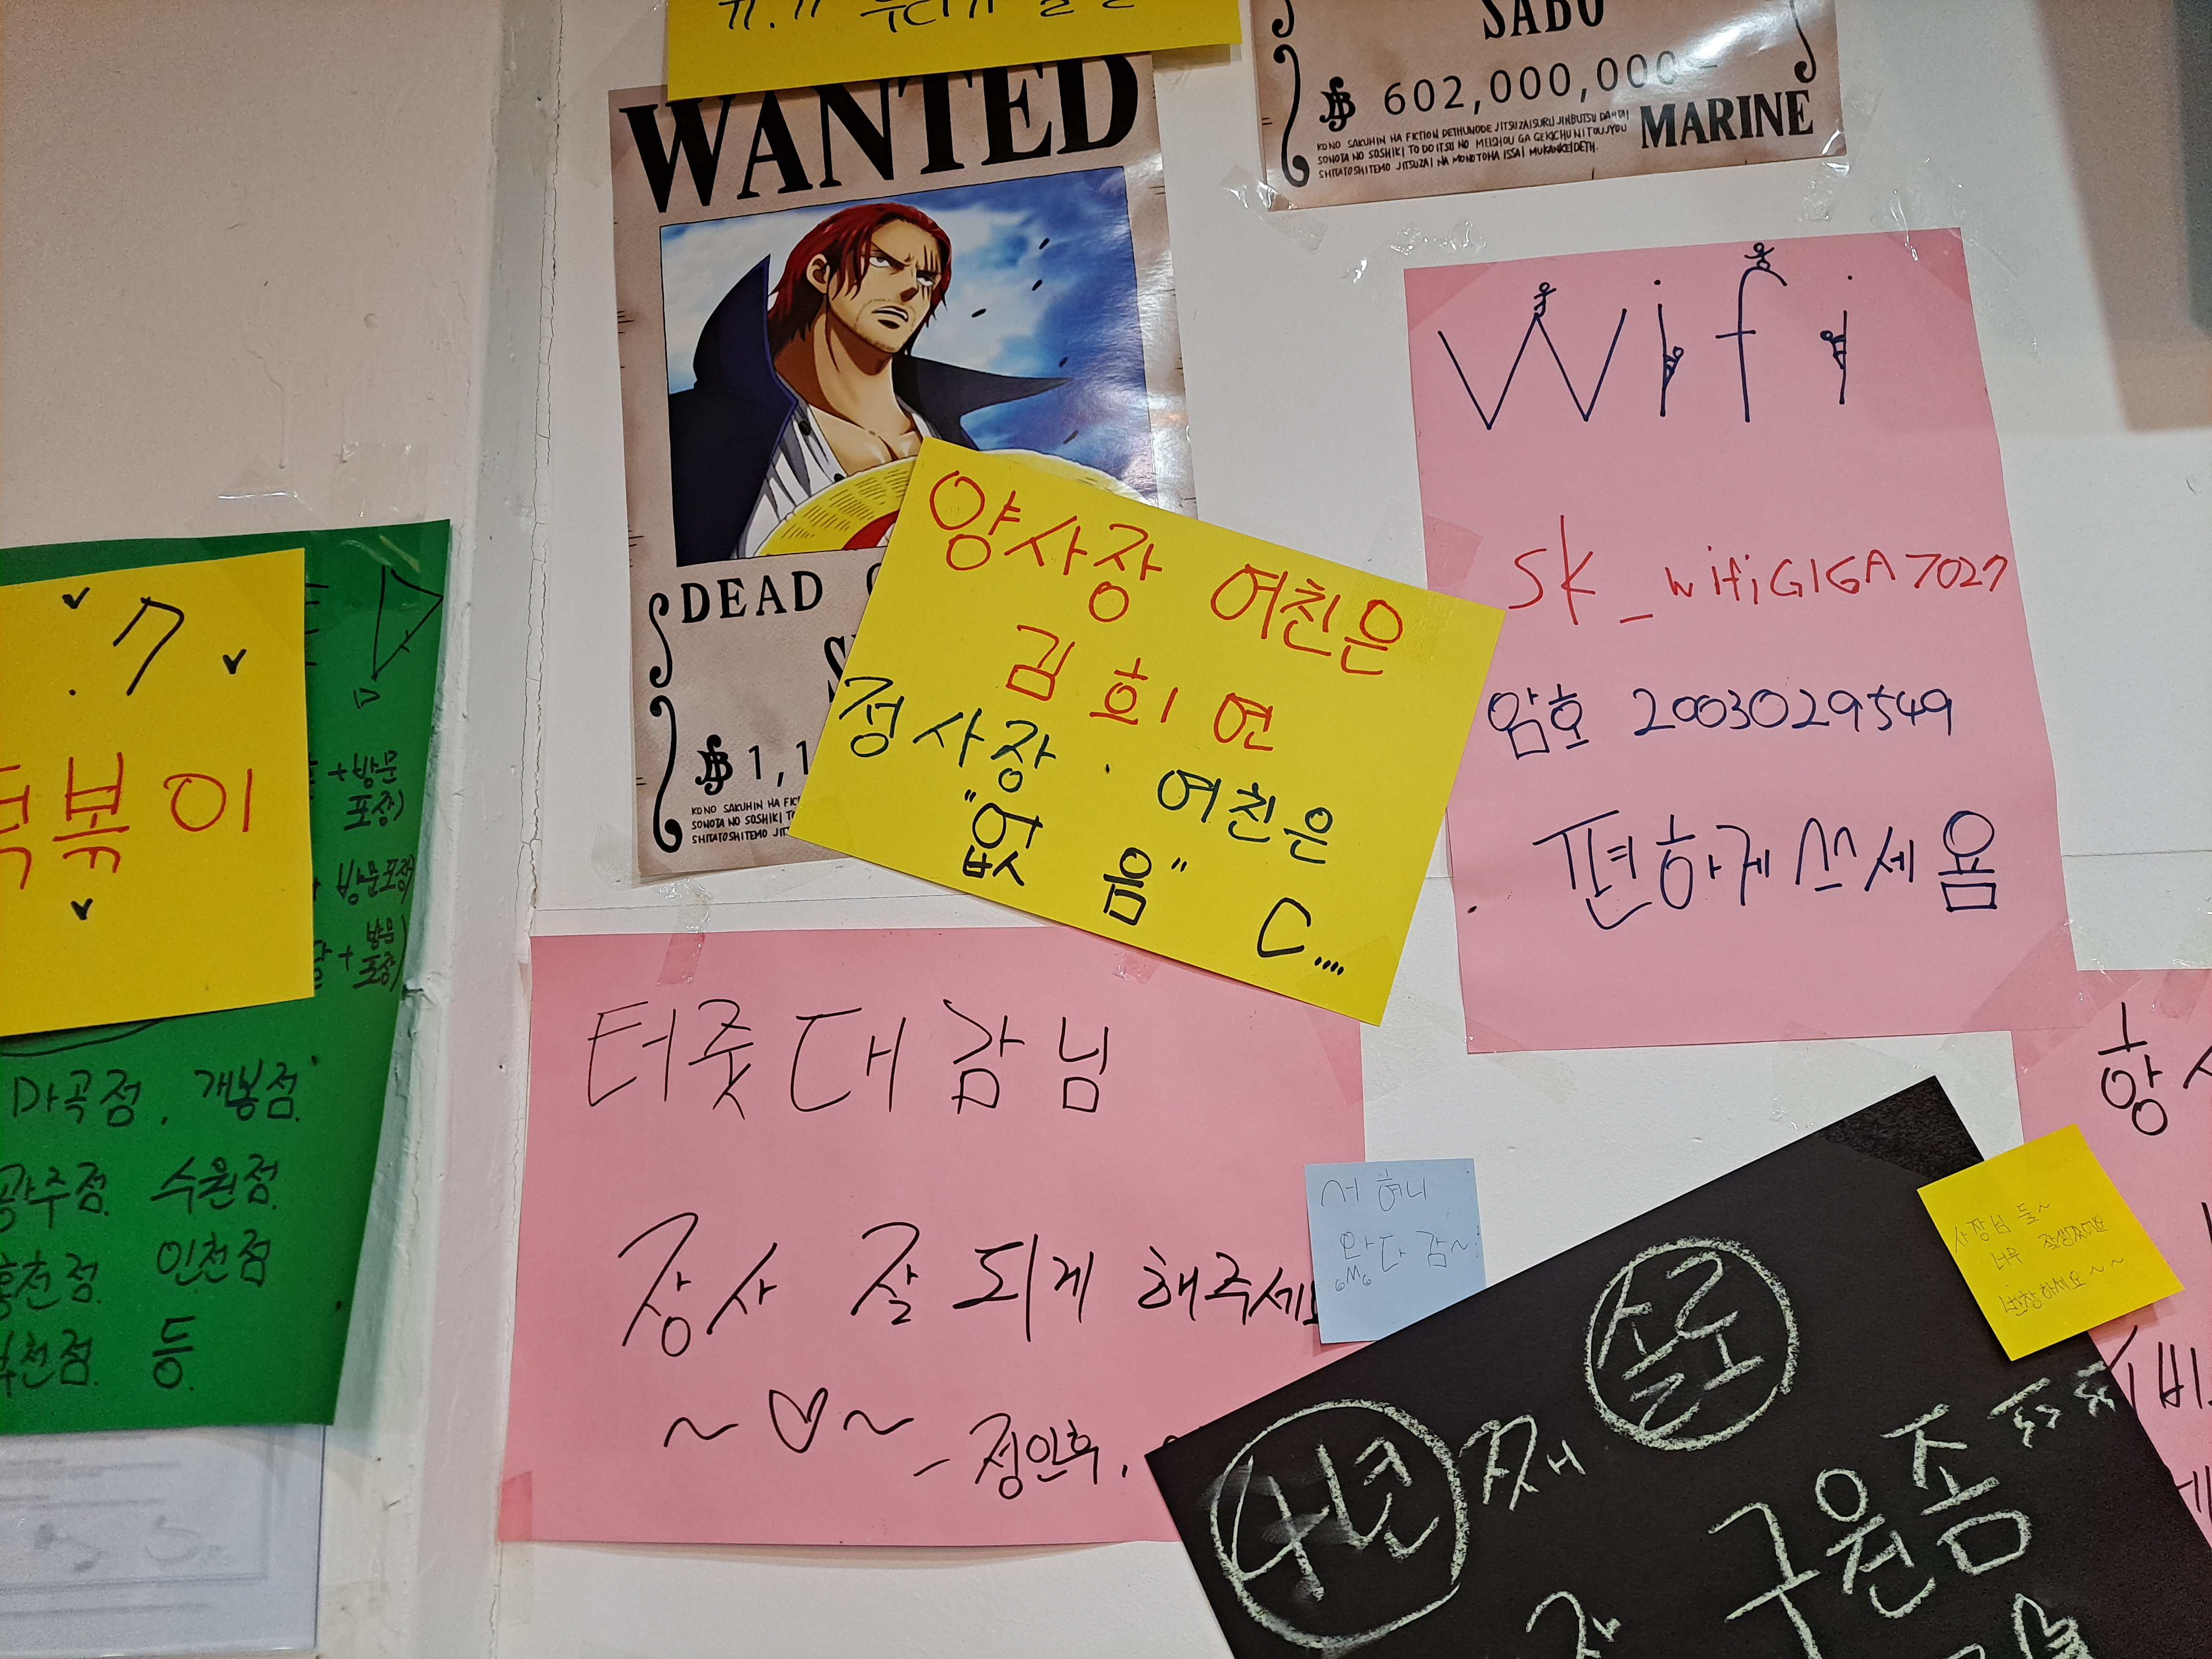 SABO
602,000,000-
MARINE
KONO SAKUHIN HA FICTION DETHUNODE JITSUZAISURU JINBUTSU DANTAI
SONOTA NO SOSHIKI TO DOITSU NO MEISHOU GA GEKICHU NI TOUJYOU
SHITATOSHITEMO JITSUZAI NA MONOTOHA ISSAI MUKANKEIDETH.
WANTED
DEAD
1,1
KONO SAKUHIN HA FIC
SONOTA NO SOSHIKI T
SHITATOSHITEMO JIT
Wifi
SK_wifiGIGA7027
암호 2003029549
편하게 쓰세욤
양사장 여친은
김희연
정사장. 여친은
"없음" C....
볶이
+방문
포장)
방문포장)
+방문
포장)
마곡점. 개봉점.
광주점. 수원점.
홍천점. 인천점
천점. 등.
터줏대감님
장사 잘 되게 해주세요
~♡~
- 정인혁.
서허니
왔다감~
사장님 들~
너무 잘생겼어요
번창하세요~~
4년째 솔로
구원좀